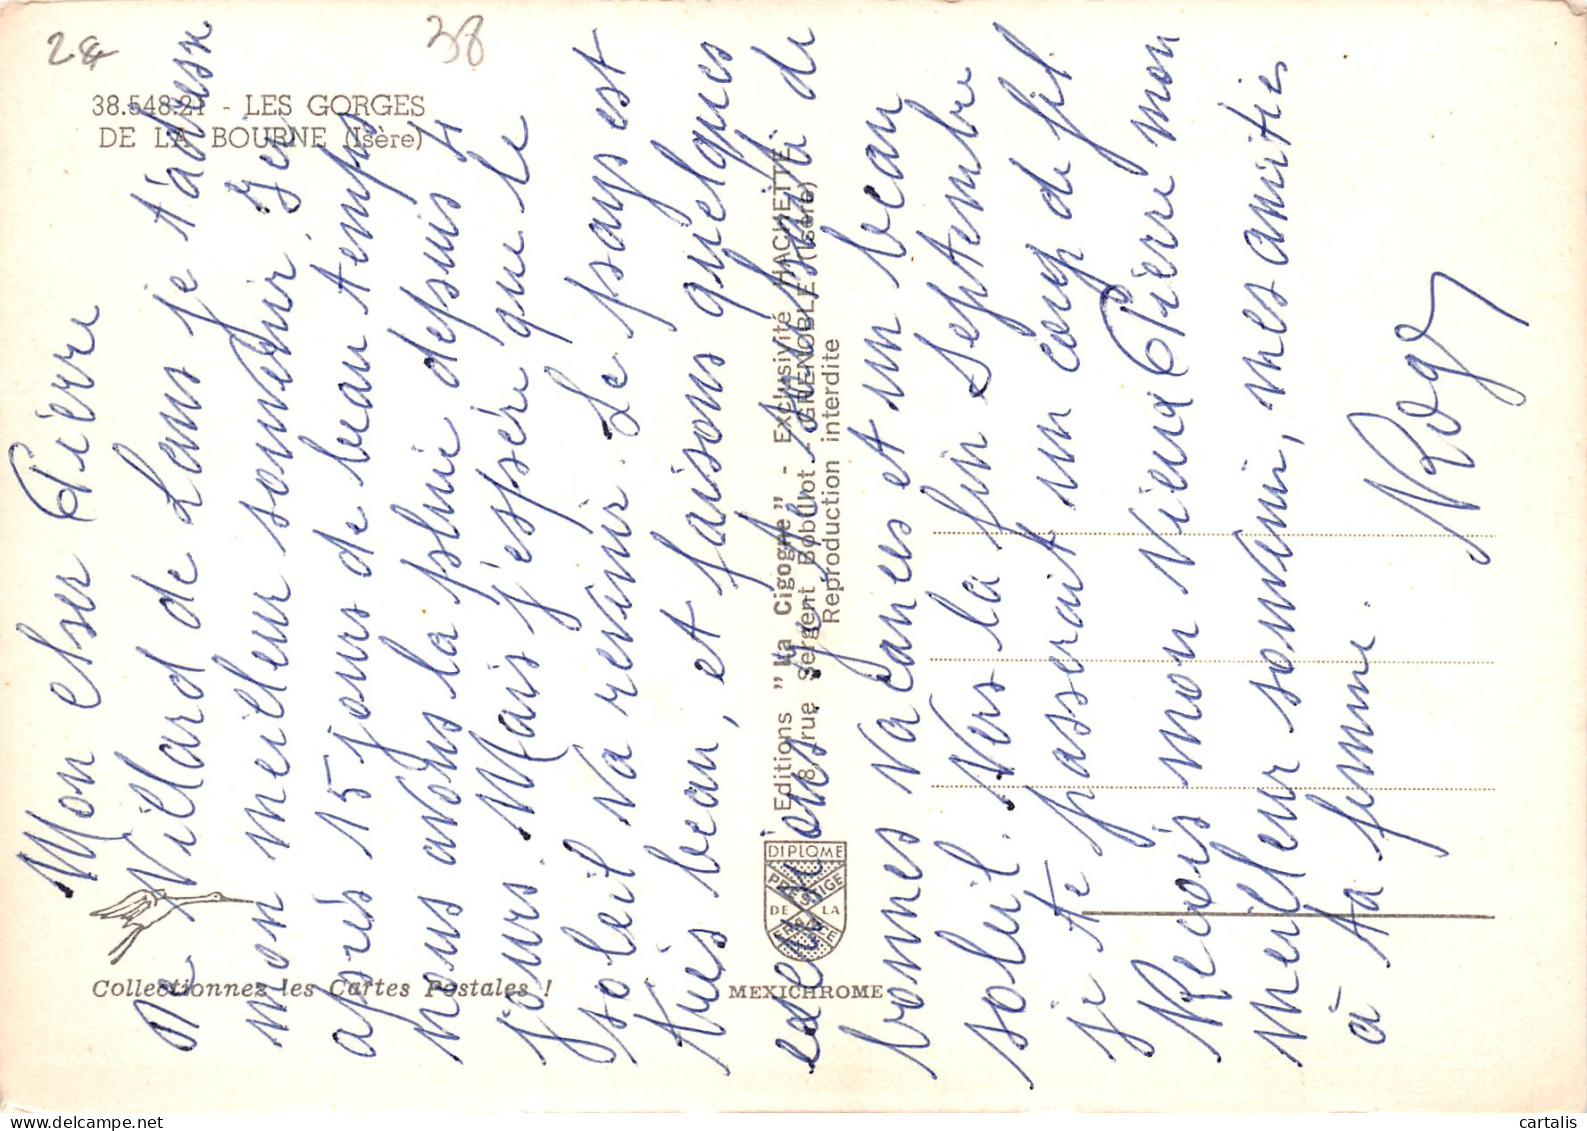 2 &
38
38.548.21 - LES GORGES
DE LA BOURNE (Isère)
Mon cher Pierre
De Villard de Lans je t'adresse
mon meilleur souvenir. Ici
après 15 jours de beau temps
nous avons la pluie depuis 4
jours. Mais j'espère que le
soleil va revenir. Le pays est
très beau, et faisons quelques
excursions. Je te souhaite de
bonnes vacances et un beau
soleil. Vers la fin Septembre
je te passerait un coup de fil
Reçois mon vieux Pierre mon
meilleur souvenir, mes amitiés
à ta femme.
Roger
Editions "La Cigogne" - Exclusivité HACHETTE
8, rue Sergent Bobillot - GRENOBLE (Isère)
Reproduction interdite
DIPLOME
PRESTIGE
DE LA
FRANCE
Collectionnez les Cartes Postales !
MEXICHROME
cartalis